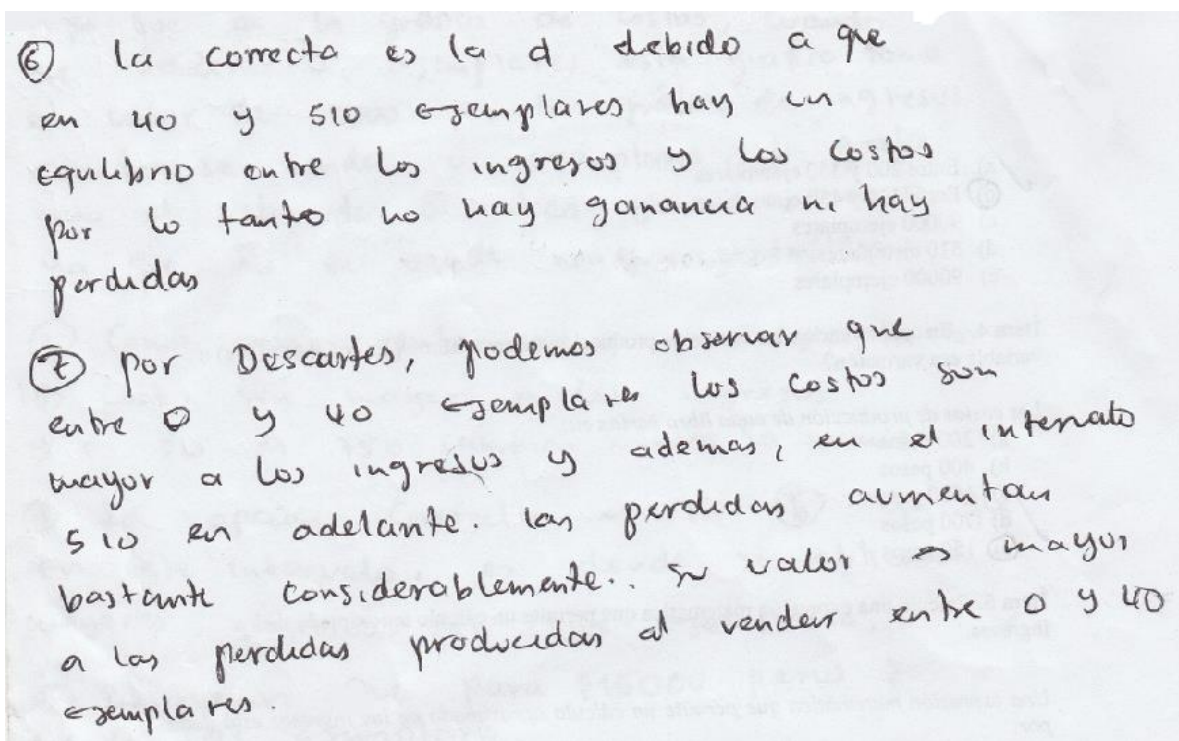 ⑥ la correcta es la d debido a que
en 40 y 510 ejemplares hay un
equilibrio entre los ingresos y los costos
por lo tanto no hay ganancia ni hay
perdidas
⑦ por Descartes, podemos observar que
entre 0 y 40 ejemplares los costos son
mayor a los ingresos y ademas, en el intervalo
510 en adelante. las perdidas aumentan
bastante considerablemente. Su valor es mayor
a las perdidas producidas al vender entre 0 y 40
ejemplares.